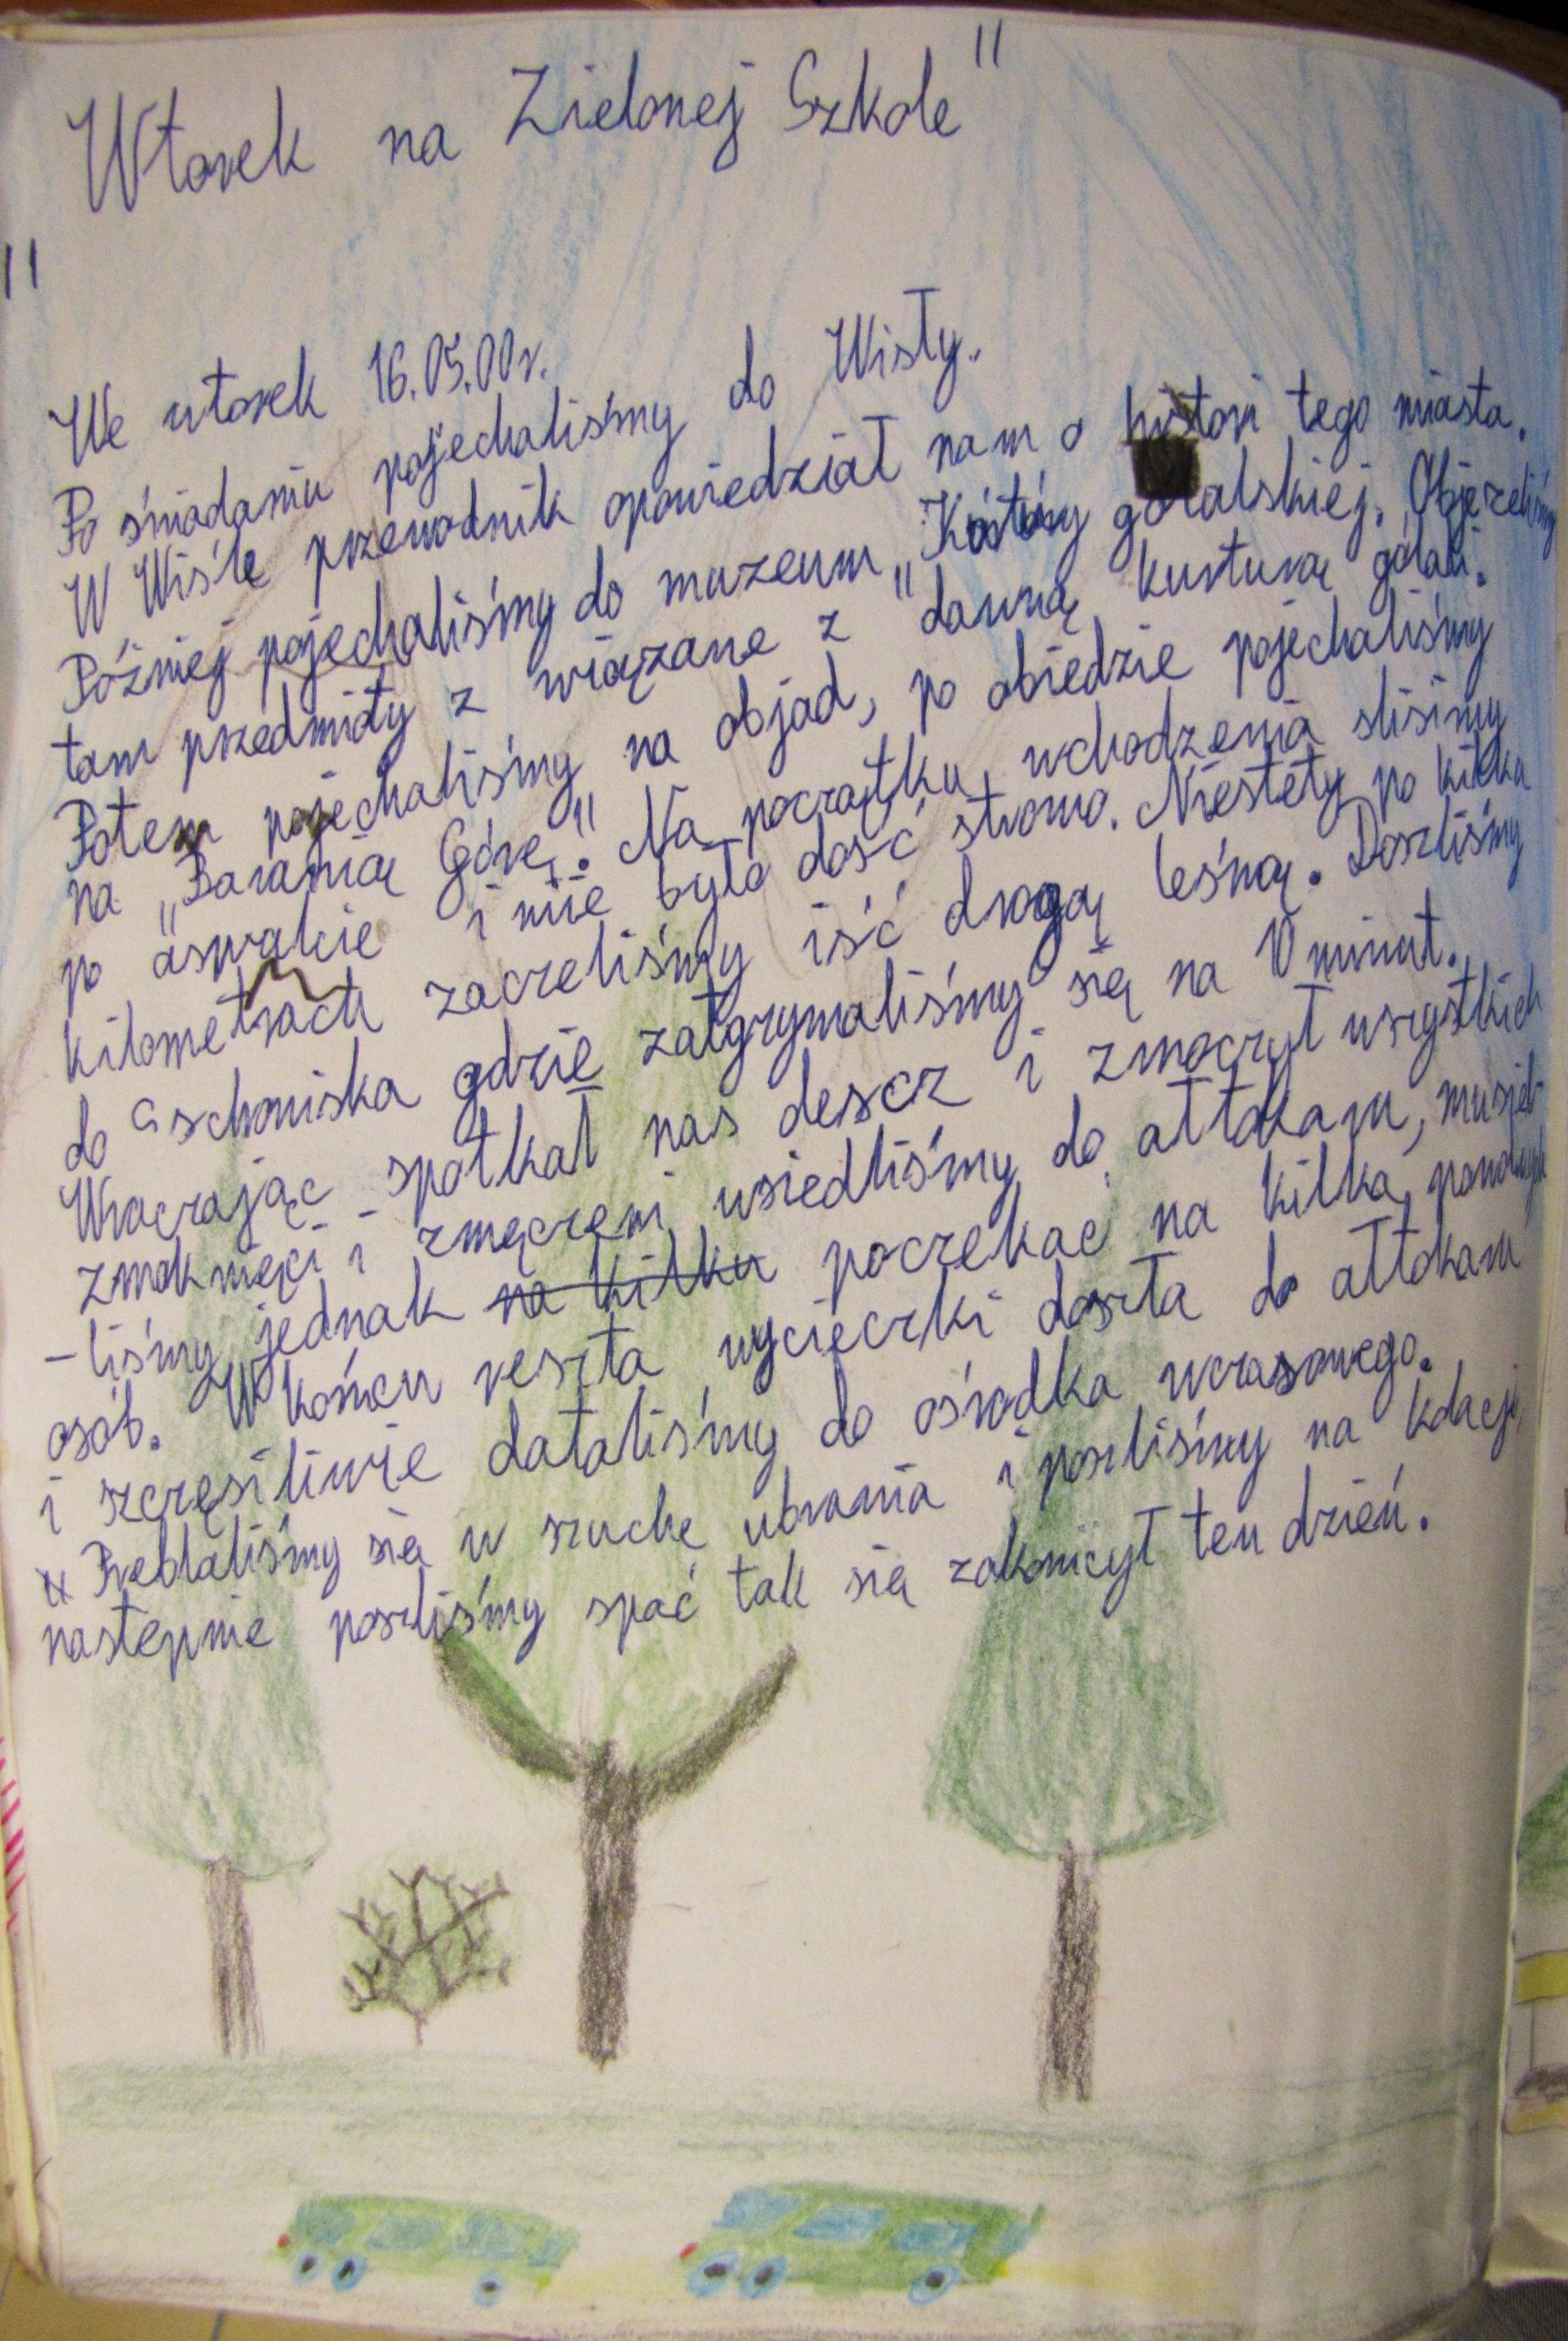 "Wtorek na Zielonej Szkole"
We wtorek 16.05.00r.
Po śniadaniu pojechaliśmy do Wisły.
W Wiśle przewodnik opowiedział nam o histori tego miasta.
Później pojechaliśmy do muzeum „ góralskiej. Objezeliśmy
tam przedmioty z wiązane z "dawną kurturą górali.
Potem pojechaliśmy na objad, po obiedzie pojechaliśmy
na „Baranią Górę." Na początku wchodzenia sliśimy
po aswalcie i nie było dość stromo. Niestety po kilku
kilometrach zaczeliśmy iść drogą leśną. Doszliśmy
do schoniska gdzie zatgrzymaliśmy się na 10 minut.
Wraczając spotkał nas deszcz i zmoczył wszystkich
zmoknięci i zmęczeni wsiedliśmy do ałtokaru, musie-
-liśmy jednak na kilku poczekać na kilka
osób. W końcu reszta wycieczki doszła do ałtokaru
i szczęsiliwie datarliśmy do ośrodka wczasowego.
Prebraliśmy się w szuche ubrania i poszliśmy na kolacje,
nastempnie poszliśmy spać tak się zakonicył ten dzień.